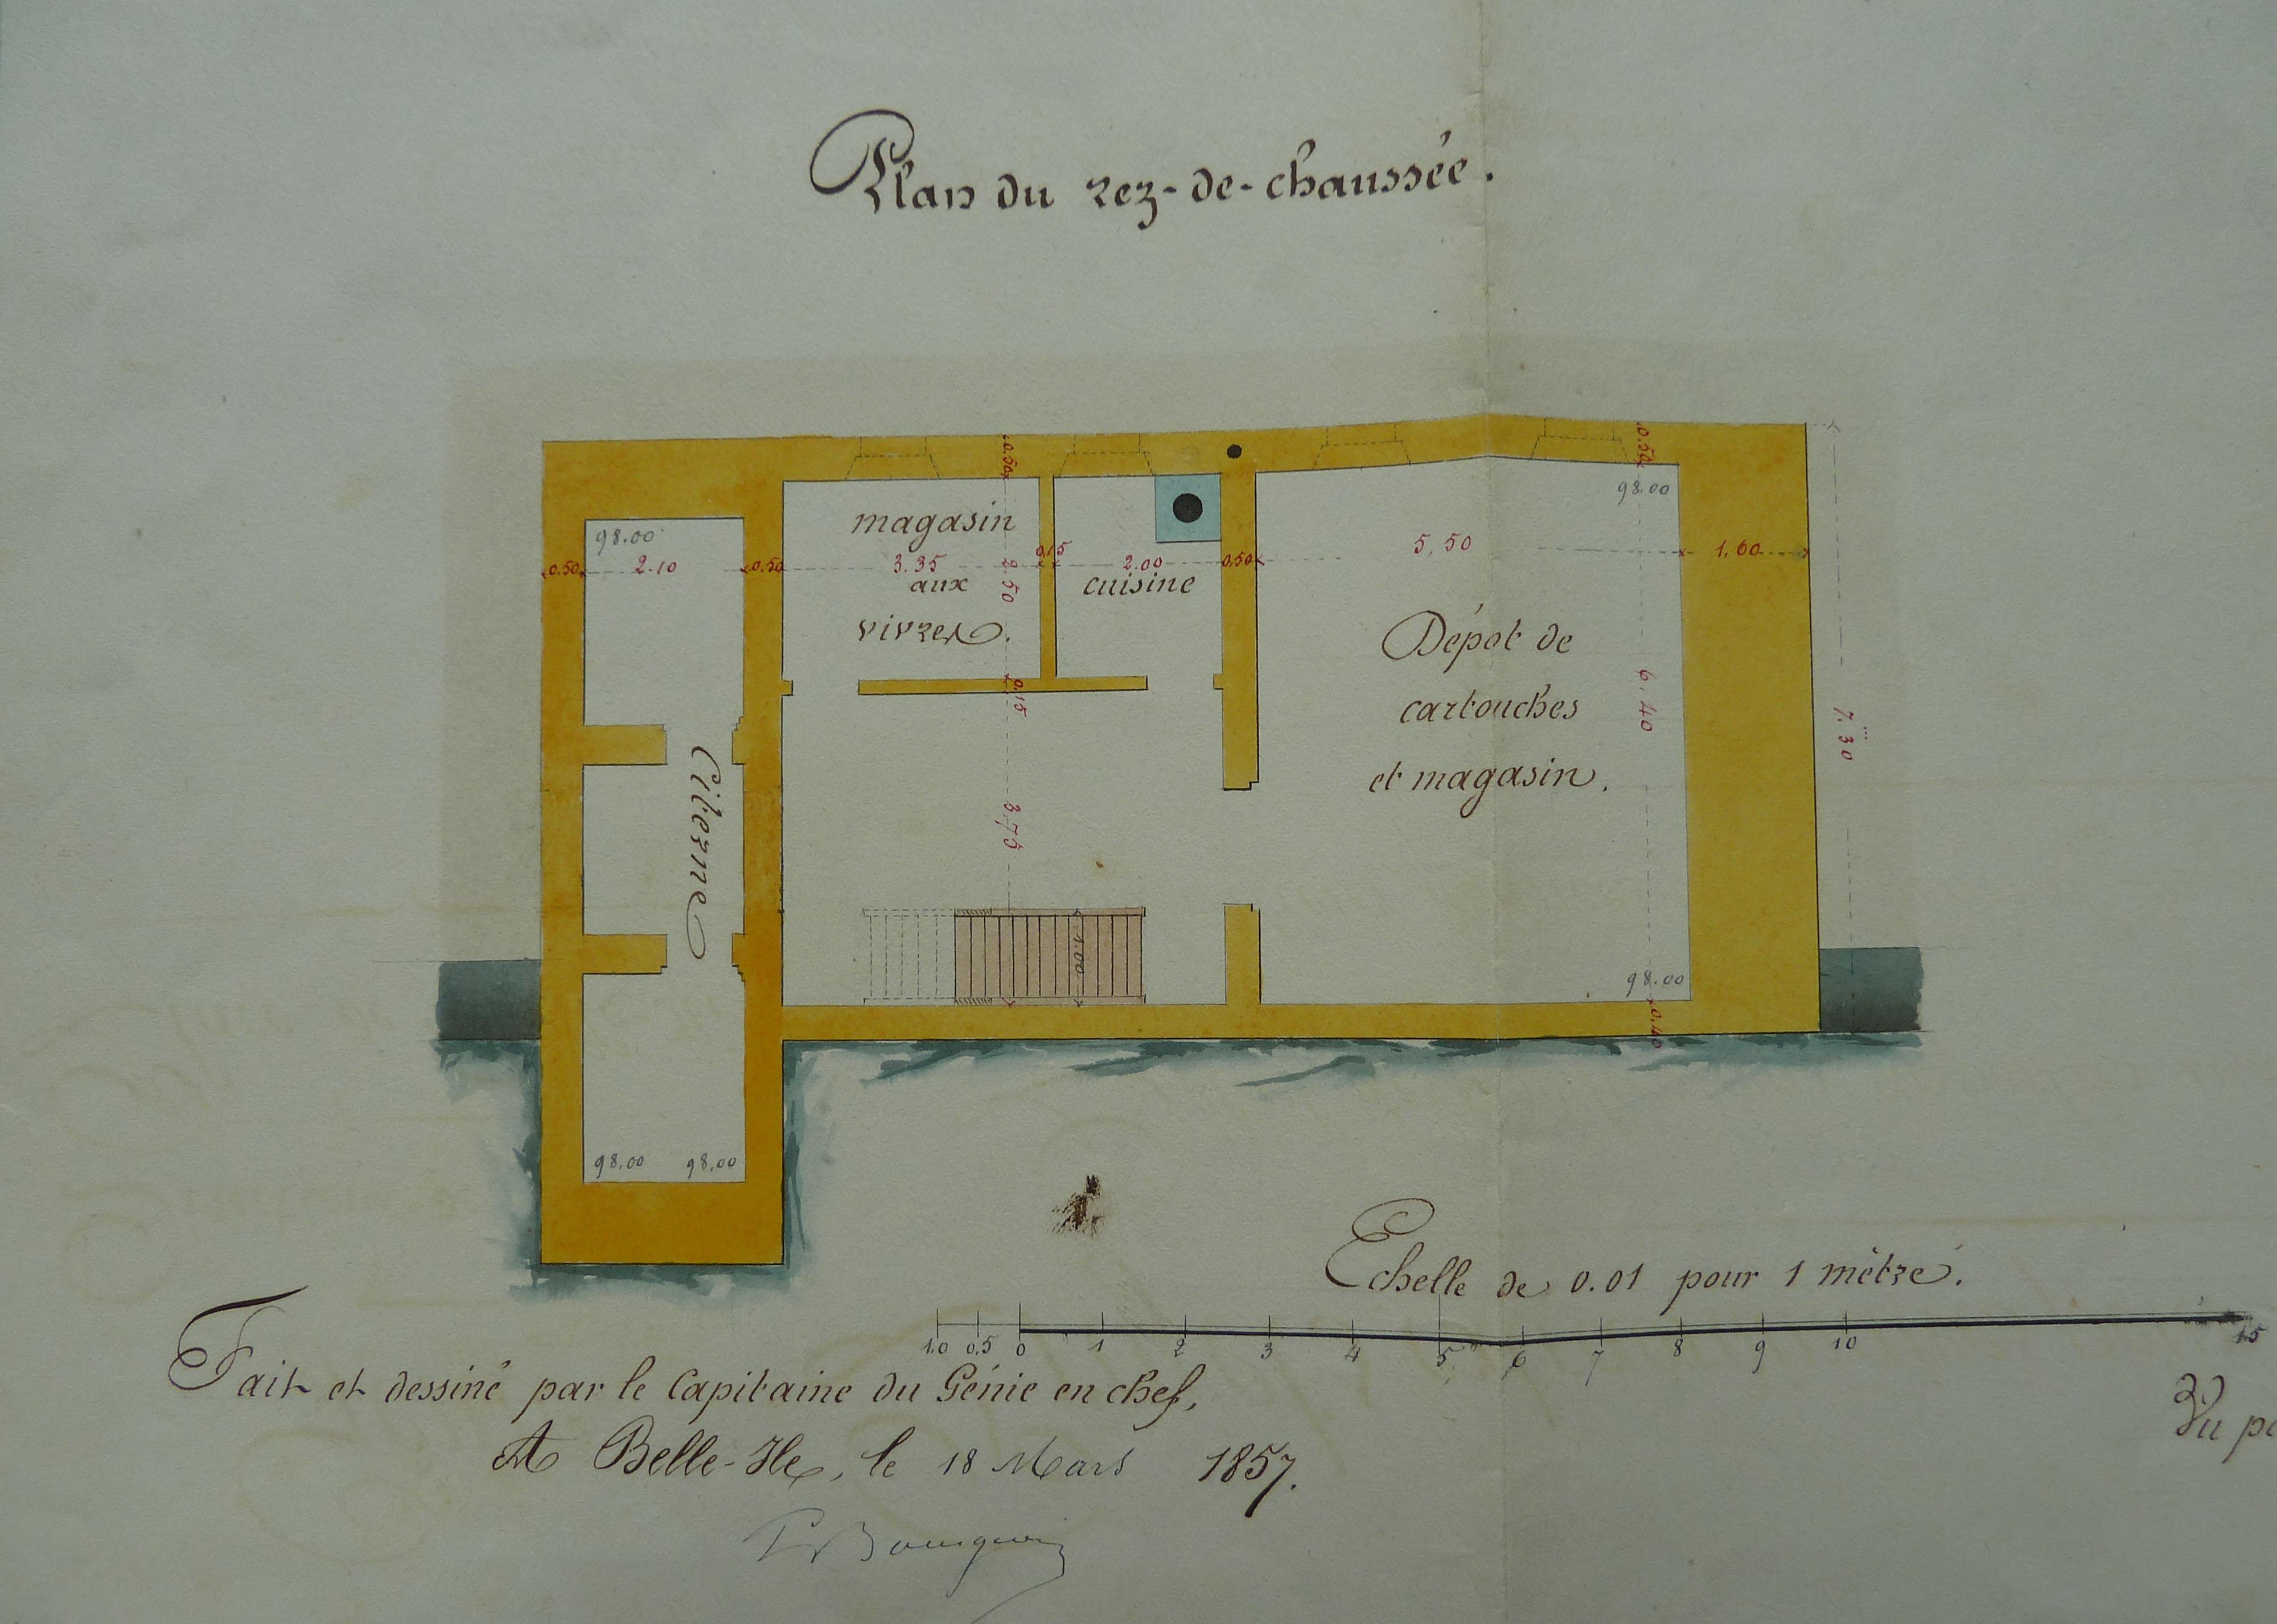 Plan du rez-de-chaussée.
0.50
0.50
98.00
98.00
magasin
aux
vivres.
cuisine
0.50
2.10
0.50
3.35
2.50
0.15
2.00
0.50
5,50
1.60
Dépot de
cartouches
et magasin.
6.40
7.30
0.15
3.75
Citerne
1.00
98.00
0.40
98.00 98.00
Echelle de 0.01 pour 1 mètre.
1.0 0.5 0 1 2 3 4 5 6 7 8 9 10 15
Fait et dessiné par le Capitaine du Génie en chef,
A Belle-Ile, le 18 Mars 1857.
Vu